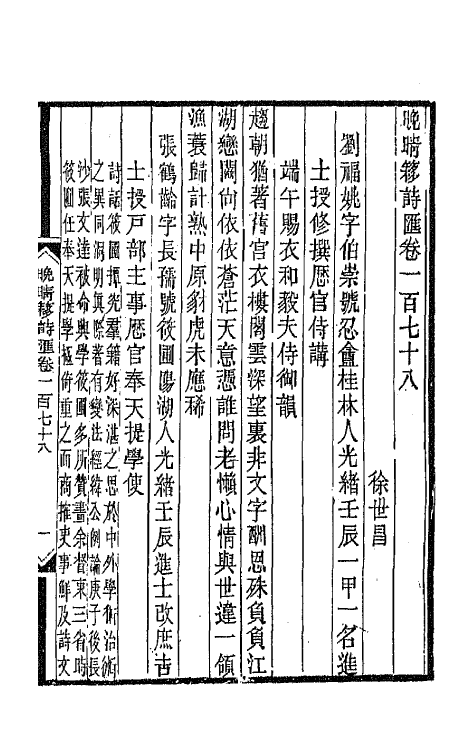 晚晴簃詩匯卷一百七十八
徐世昌
劉福姚字伯崇號忍盦桂林人光緒壬辰一甲一名進
士授修撰歷官侍講
端午賜衣和毅夫侍御韻
趨朝猶著舊宮衣樓閣雲深望裏非文字酬恩殊負負江
湖戀闕尙依依蒼茫天意憑誰問老懶心情與世違一領
漁蓑歸計熟中原豺虎未應稀
張鶴齡字長孺號筱圃陽湖人光緒壬辰進士改庶吉
士授戶部主事歷官奉天提學使
詩話筱圃撢究羣籍好深湛之思於中外學術治術
之異同洞明眞際著有變法經緯公例論庚子後長
沙張文達被命興學筱圃多所贊畫余督東三省時
筱圃任奉天提學極倚重之而商搉吏事鮮及詩文
晚晴簃詩匯卷一百七十八
一